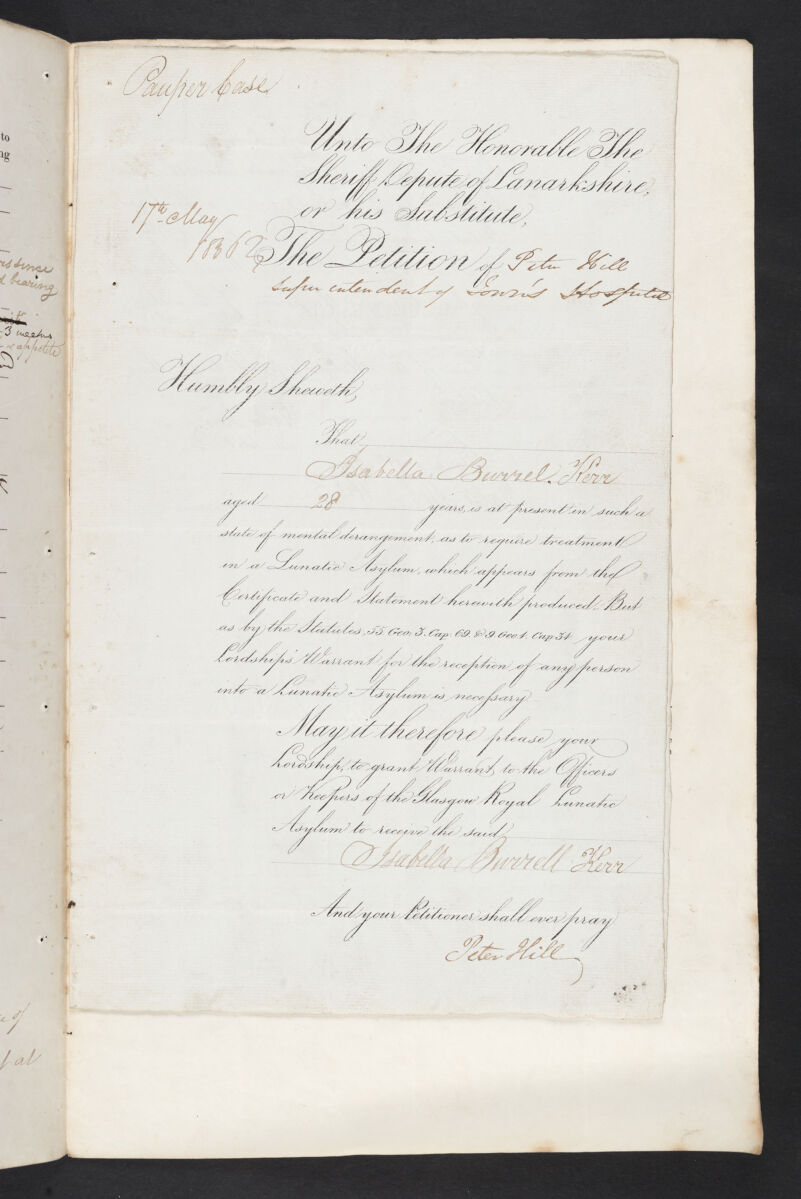 Pauper Case
Unto The Honorable The
Sheriff Depute of Lanarkshire,
or his Substitute,
17th May
The Petition of Peter Hill
Superintendent of Town's Hospital
Humbly Sheweth,
That
Isabella Burrel Kerr
aged 28 years, is at present in such a
state of mental derangement, as to require treatment
in a Lunatic Asylum, which appears from the
Certificate and Statement herewith produced. But
as by the Statutes, 55 Geo. 3. Cap. 69. & 9 Geo 4. Cap 34 your
Lordship's Warrant for the reception of any person
into a Lunatic Asylum is necessary
May it therefore please your
Lordship, to grant Warrant, to the Officers
or Keepers of the Glasgow Royal Lunatic
Asylum to receive the said
Isabella Burrell Kerr
And your Petitioner shall ever pray
Peter Hill
to
ng
since
bearing
3 weeks
appetite
of
at